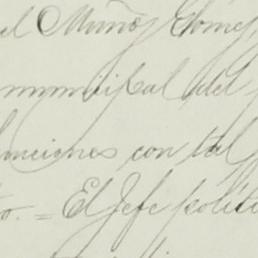 el Muñoz Gómez
municipal del
funciones con tal
to. = El Jefe políti